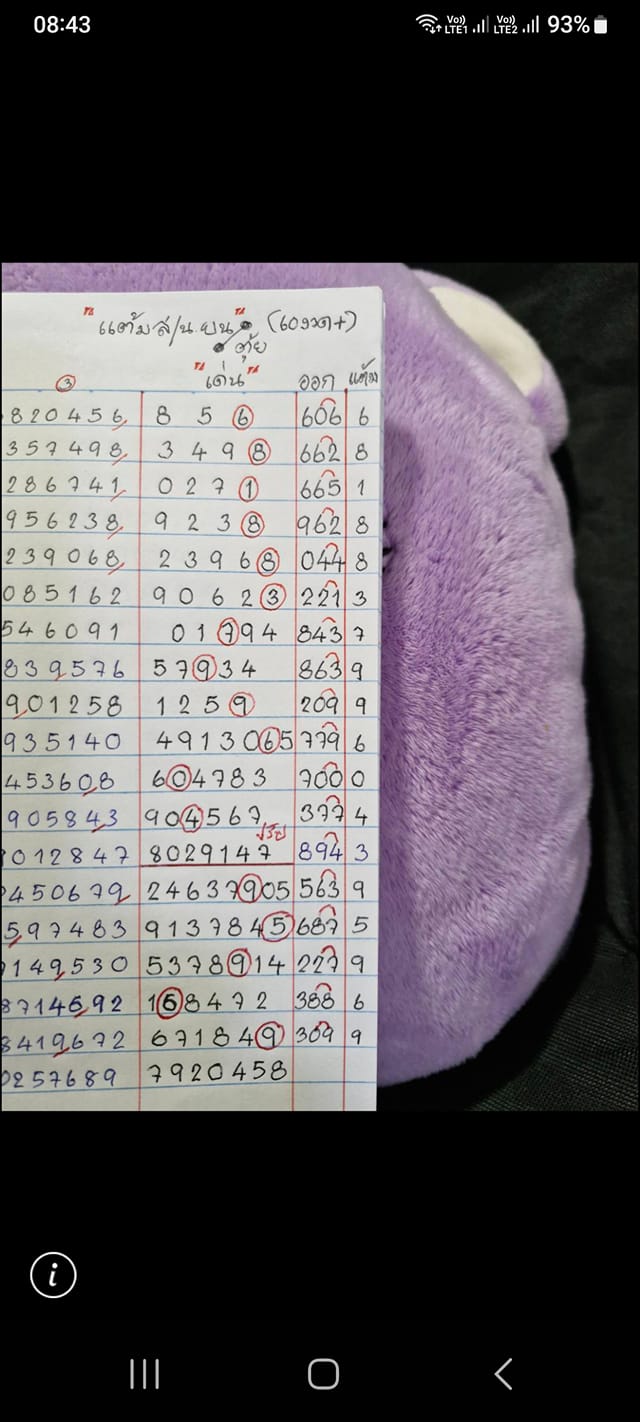 08:43 Vo)) LTE1 Vo)) LTE2 93%
"แต้มส/น.ยน" (60งวด+)
ตุ้ย
3 "เด่น" ออก แต้ม
820456 8 5 6 606 6
357498 3 4 9 8 662 8
286741 0 2 7 1 665 1
956238 9 2 3 8 962 8
239068 2 3 9 6 8 044 8
085162 9 0 6 2 3 221 3
546091 01794 843 7
839576 57934 863 9
901258 1259 209 9
935140 4913065 779 6
453608 604783 700 0
905843 904567 377 4
012847 8029147 894 3
450679 24637905 563 9
597483 9137845 687 5
149530 5378914 227 9
8714692 168472 388 6
8419672 671849 309 9
0257689 7920458
i